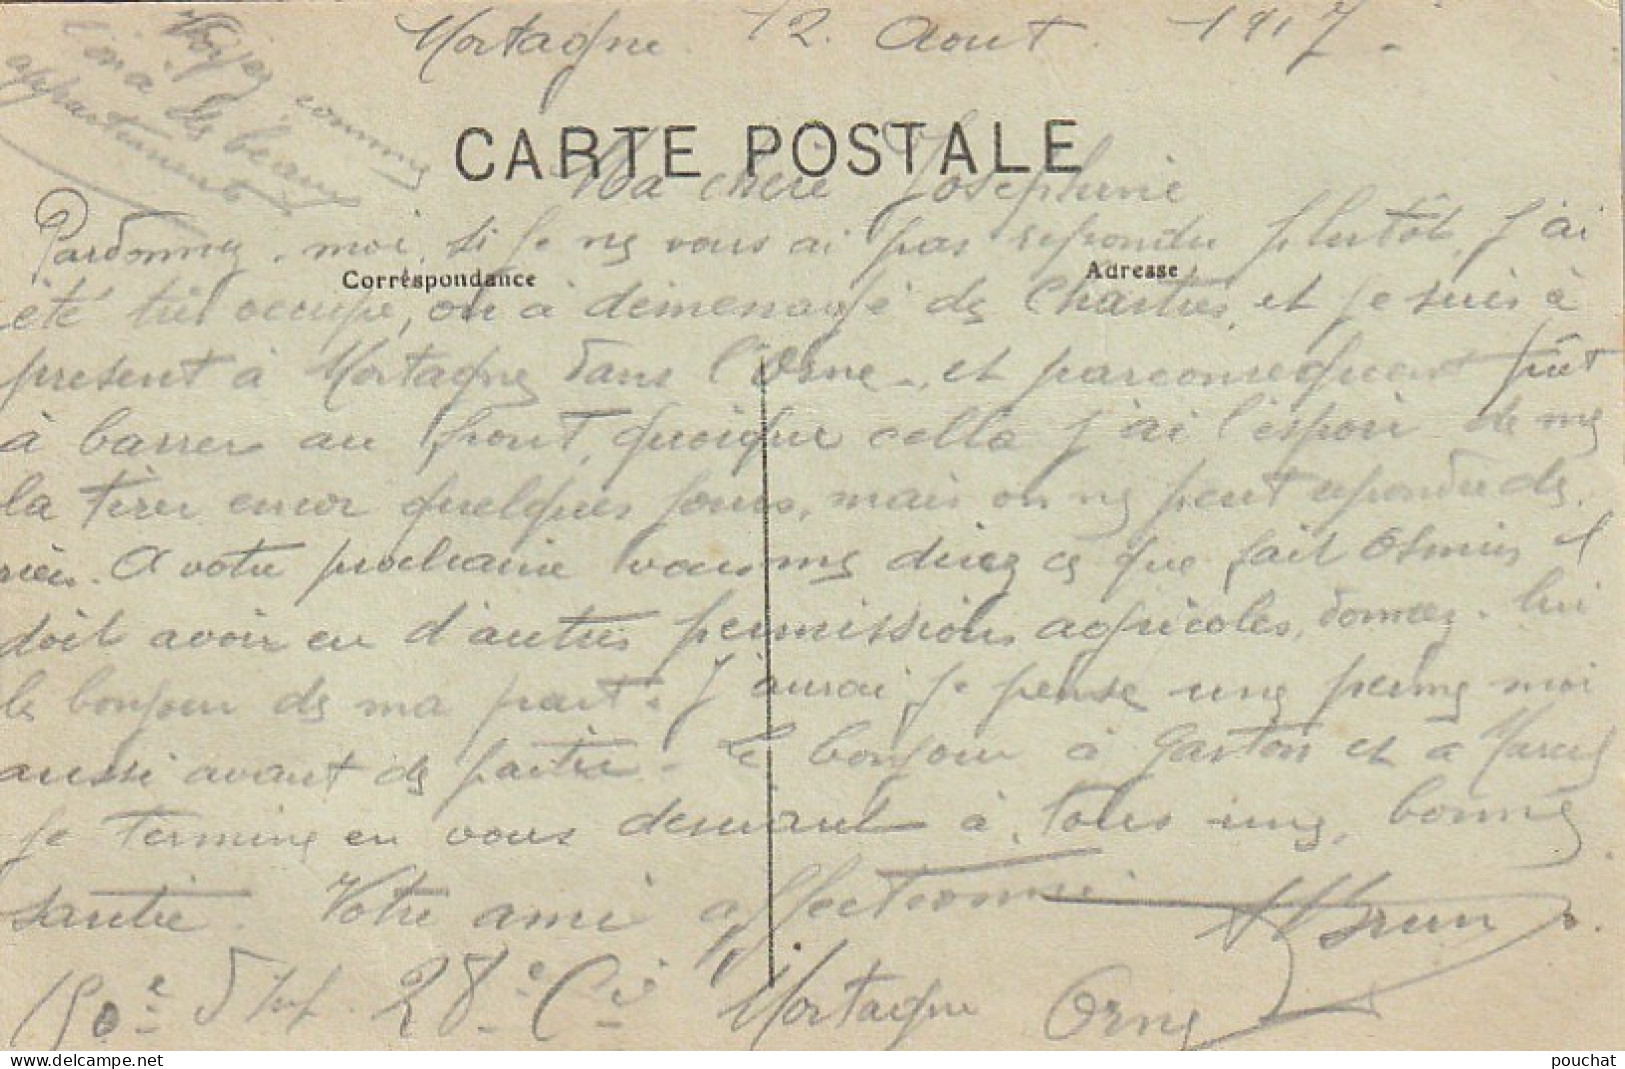 Mortagne. 12. Aout. 1917.
Voyez comme
l'on a de beaux
appartements
CARTE POSTALE
Ma chère Joséphine
Pardonnez-moi, si je ne vous ai pas repondu plutôt, J'ai
Correspondance
Adresse
été très occupé, on à demenagé de Chartres, et je suis à
present à Mortagne dans l'Orne, et parconsequent prêt
à barrer au front, quoique cella j'ai l'espoir de me
la tirer encor quelques jours, mais on ne peut repondre de
rien. A votre prochaine vous me direz ce que fait Osmin il
doit avoir eu d'autres permissions agricoles, donnez-lui
le bonjour de ma part. J'aurai je pense une perme moi
aussi avant de partir. Le bonjour à Gaston et a Marcel
Je termine en vous desirant à tous une bonne
santée. Votre ami affectionné Brun
150e d'Inf. 28e Cie Mortagne Orne
www.delcampe.net
pouchat